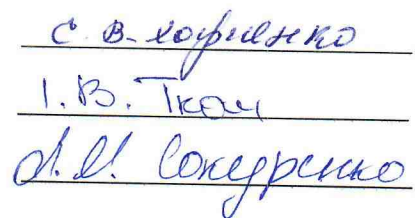 С. В. Хоріенко
І. В. Ткач
Л. М. Сокуренко